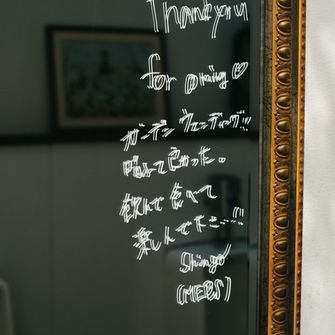 Thank you
for coming♡
ガーデンウェディング!!
晴れて良かった。
飲んで食べて
楽しんでたこー!!
Shingo
(MEBS)